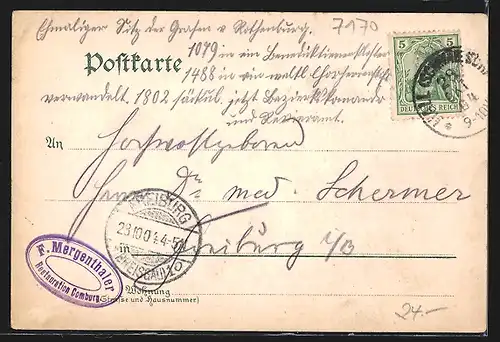 Ehmaliger Sitz der Grafen v. Rothenburg.
7170
1079 in ein Benediktinerkloster
Postkarte
1488 in ein weltl. Chorherrenstift
verwandelt. 1802 säkul. jetzt Bezirkskommando
und Revieramt.
5 5
DEUTSCHES REICH
An
Hochwohlgeboren
Herrn Dr. med. Schermer
in Freiburg i/B
FREIBURG
23.10.04.4-5N
(BREISGAU)
F. Mergenthaler
Restauration Comburg
Wohnung
(Strasse und Hausnummer)
24.-